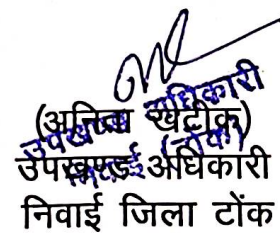 (अनिता खटीक)
उपखण्ड अधिकारी
निवाई (टोंक)
उपखण्ड अधिकारी
निवाई जिला टोंक